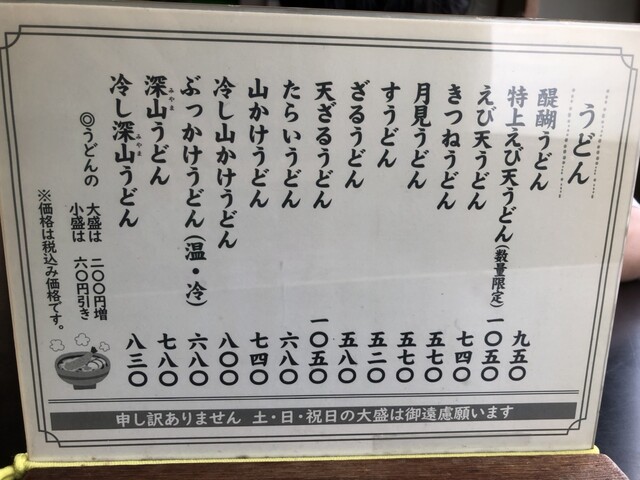 うどん
醍醐うどん 九五〇
特上えび天うどん(数量限定) 一〇五〇
えび天うどん 七四〇
きつねうどん 五七〇
月見うどん 五七〇
すうどん 五二〇
ざるうどん 五八〇
天ざるうどん 一〇五〇
たらいうどん 六八〇
山かけうどん 七四〇
冷し山かけうどん 八〇〇
ぶっかけうどん(温・冷) 六八〇
深山うどん 七八〇
みやま
冷し深山うどん 八三〇
みやま
◎うどんの
大盛は 二〇〇円増
小盛は 六〇円引き
※価格は税込み価格です。
申し訳ありません 土・日・祝日の大盛は御遠慮願います